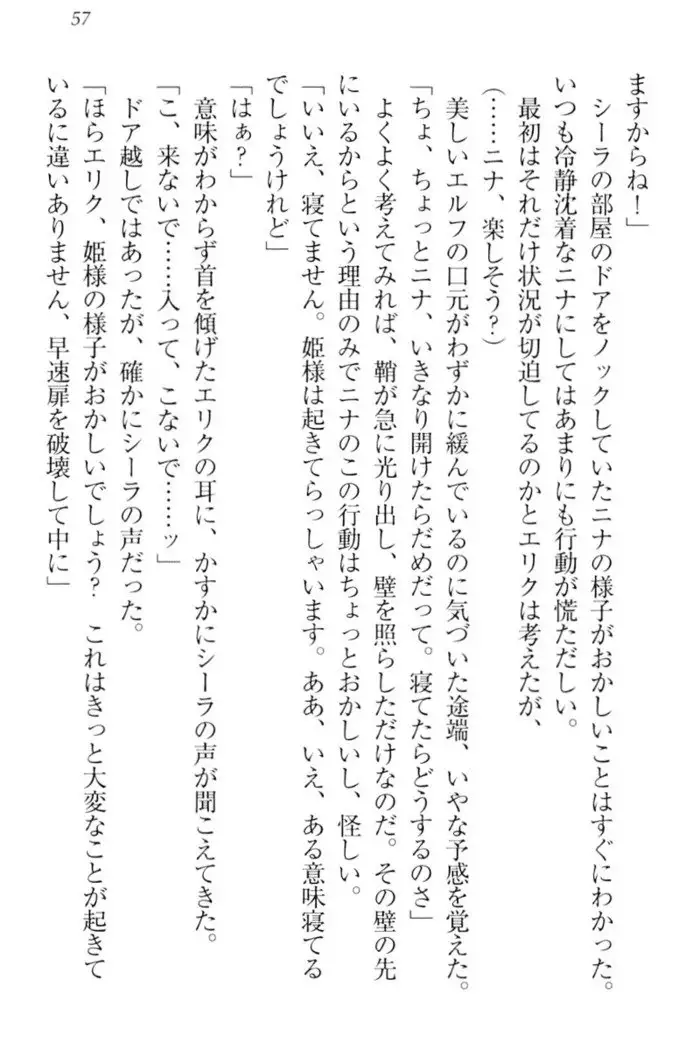 57
ますからね！」
　シーラの部屋のドアをノックしていたニナの様子がおかしいことはすぐにわかった。
いつも冷静沈着なニナにしてはあまりにも行動が慌ただしい。
　最初はそれだけ状況が切迫してるのかとエリクは考えたが、
（……ニナ、楽しそう？）
　美しいエルフの口元がわずかに緩んでいるのに気づいた途端、いやな予感を覚えた。
「ちょ、ちょっとニナ、いきなり開けたらだめだって。寝てたらどうするのさ」
　よくよく考えてみれば、鞘が急に光り出し、壁を照らしただけなのだ。その壁の先
にいるからという理由のみでニナのこの行動はちょっとおかしいし、怪しい。
「いいえ、寝てません。姫様は起きてらっしゃいます。ああ、いえ、ある意味寝てる
でしょうけれど」
「はぁ？」
　意味がわからず首を傾げたエリクの耳に、かすかにシーラの声が聞こえてきた。
「こ、来ないで……入って、こないで……ッ」
　ドア越しではあったが、確かにシーラの声だった。
「ほらエリク、姫様の様子がおかしいでしょう？　これはきっと大変なことが起きて
いるに違いありません、早速扉を破壊して中に」